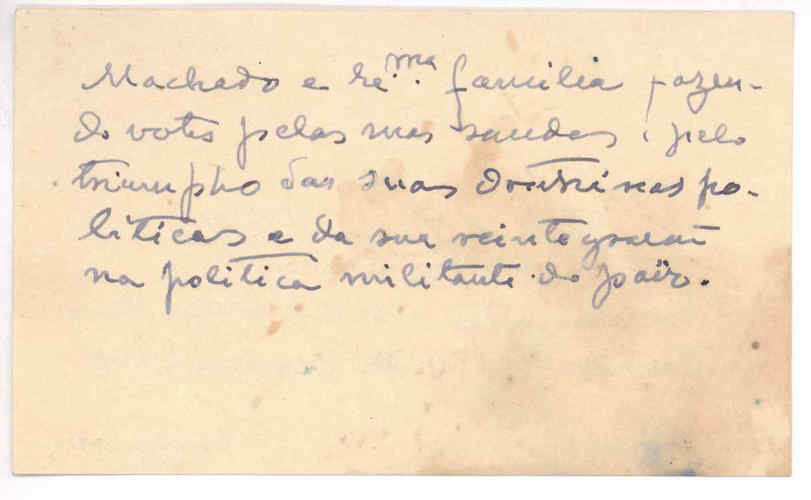 Machado e Ex.ma familia fazen-
do votos pelas suas saudes, pelo
triumpho das suas doutrinas po-
liticas e da sua reintegração
na politica militante do paiz.